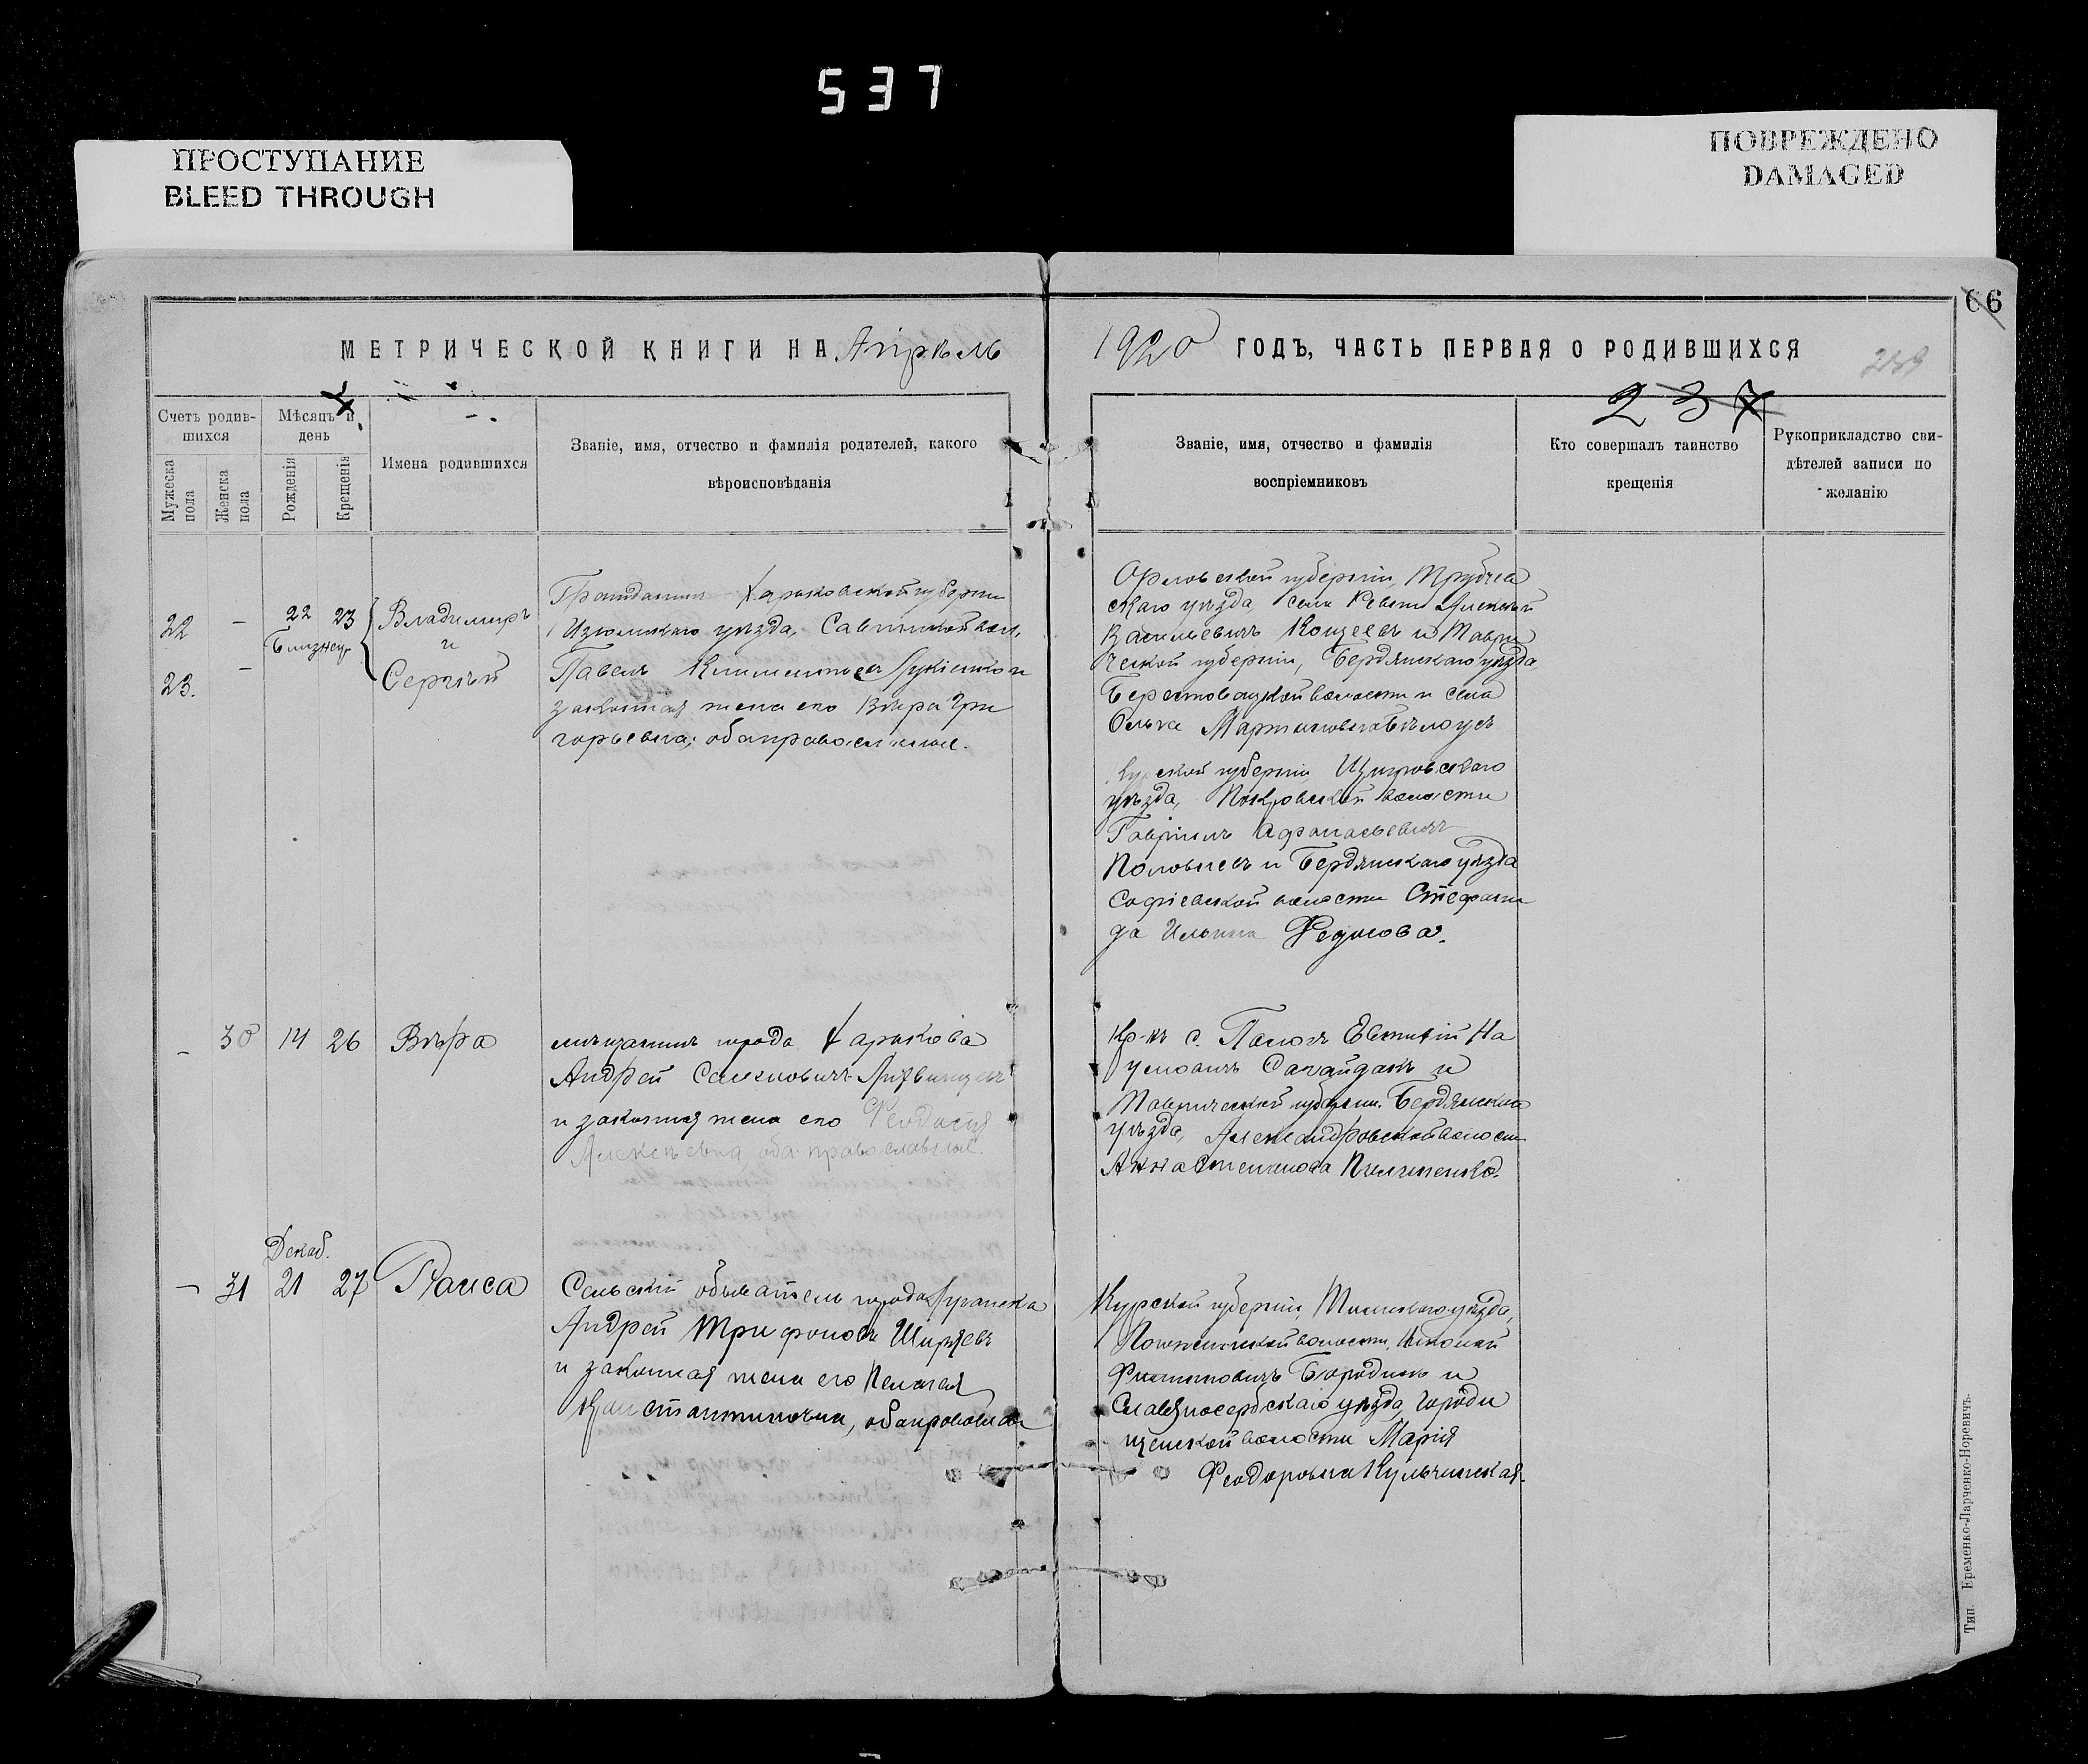 537
ПРОСТУПАНИЕ
BLEED THROUGH
ПОВРЕЖДЕНО
DAMAGED
66
МЕТРИЧЕСКОЙ КНИГИ НА Апрѣль
1920 ГОДЪ, ЧАСТЬ ПЕРВАЯ О РОДИВШИХСЯ
237
Счетъ родив-
шихся
Мѣсяцъ и
день
Мужеска
пола
Женска
пола
Рожденія
Крещенія
Имена родившихся
Званіе, имя, отчество и фамилія родителей, какого
вѣроисповѣданія
Званіе, имя, отчество и фамилія
воспріемниковъ
Кто совершалъ таинство
крещенія
Рукоприкладство сви-
дѣтелей записи по
желанію
22 – 22 23 Владимиръ
Близнец.
и
23. – Сергѣй
Гражданинъ Харьковской губерніи
Изюмскаго уѣзда,
Павелъ
законная жена его Вѣра Гри
горьевна; оба православные.
Орловской губерніи, Трубчев
скаго уѣзда, села Алексѣй
Васильевичъ и Таври
ческой губерніи, Бердянскаго уѣзда
Берестовецкой волости и села
Ольга Мартиновна Бѣлоусъ
Курской губерніи Щигровскаго
уѣзда, Покровской волости
Гавріилъ Афанасьевичъ
и Бердянскаго уѣзда
Софіевской волости Стефани
да Ильина Федосова.
– 30 14 26 Вѣра
мѣщанинъ города Харькова
Андрей
и законная жена его Феодосія
Алексѣевна, оба православные.
Кр-нъ с. Евтихій На
умовичъ Сагайдакъ и
Таврической губерніи. Бердянскаго
уѣзда, Александровской волости
Анна Степанова
Декаб.
– 31 21 27 Раиса
Сельскій обыватель города Луганска
Андрей Трифоновъ Ширяевъ
и законная жена его Пелагея
Константиновна, оба православн
Курской губерніи, Тимскаго уѣзда,
волости, Николай
Филиповичъ Бородинъ и
Славяносербскаго уѣзда, Городи
щенской волости Марія
Феодоровна Кульчинская.
Тип. Еременко-Ларченко-Норевичъ.